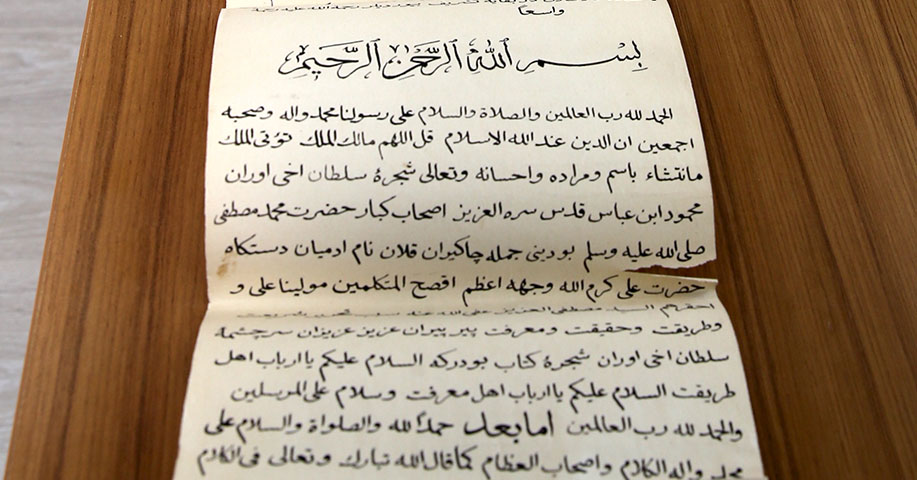 واسعا
بسم الله الرحمن الرحيم
الحمد لله رب العالمين والصلاة والسلام على رسولنا محمد واله وصحبه
اجمعين ان الدين عند الله الاسلام قل اللهم مالك الملك تؤتى الملك
مانتشاء باسم ومراده واحسانه وتعالى شجرهٔ سلطان اخى اوران
محمود ابن عباس قدس سره العزيز اصحاب كبار حضرت محمد مصطفى
صلى الله عليه وسلم بودينى جمله چاكيران قلان نام ادميان دستكاه
حضرت على كرم الله وجهه اعظم افصح المتكلمين مولينا على و
وطريقت وحقيقت ومعرفت پير پيران عزيز عزيزان سرچشمهٔ
سلطان اخى اوران شجرهٔ كتاب بودركه السلام عليكم يا ارباب اهل
طريقت السلام عليكم يا ارباب اهل معرفت وسلام على المرسلين
والحمد لله رب العالمين اما بعد حمدا لله والصلواة والسلام على
محمد واله الكلام واصحاب العظام كما قال الله تبارك وتعالى فى الكلام